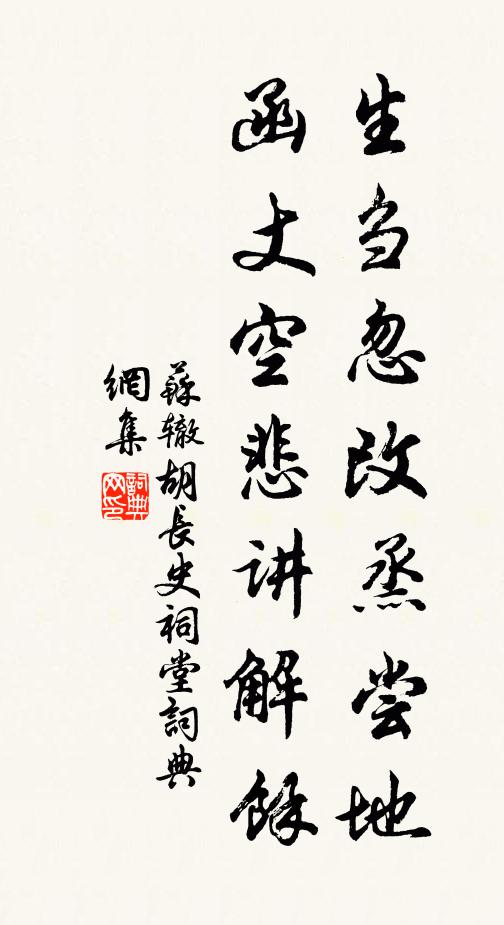 生刍忽改烝尝地
函丈空悲讲解馀
蘇辙胡長史祠堂詞典
網集
詞典
网印